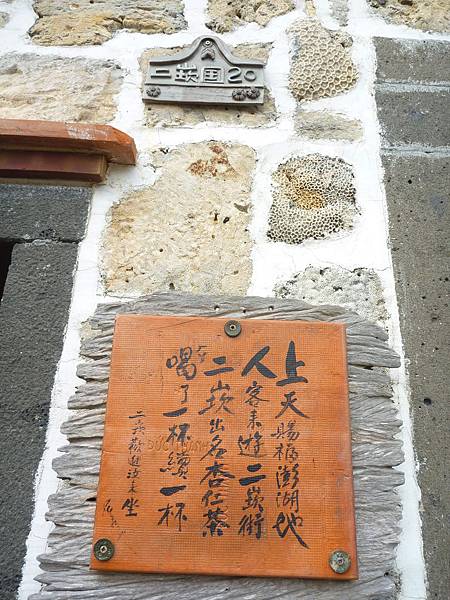 二崁国20
上天賜福澎湖地
人客來遊二崁街
二崁出名杏仁茶
喝了一杯續一杯
二崁歡迎汝來坐